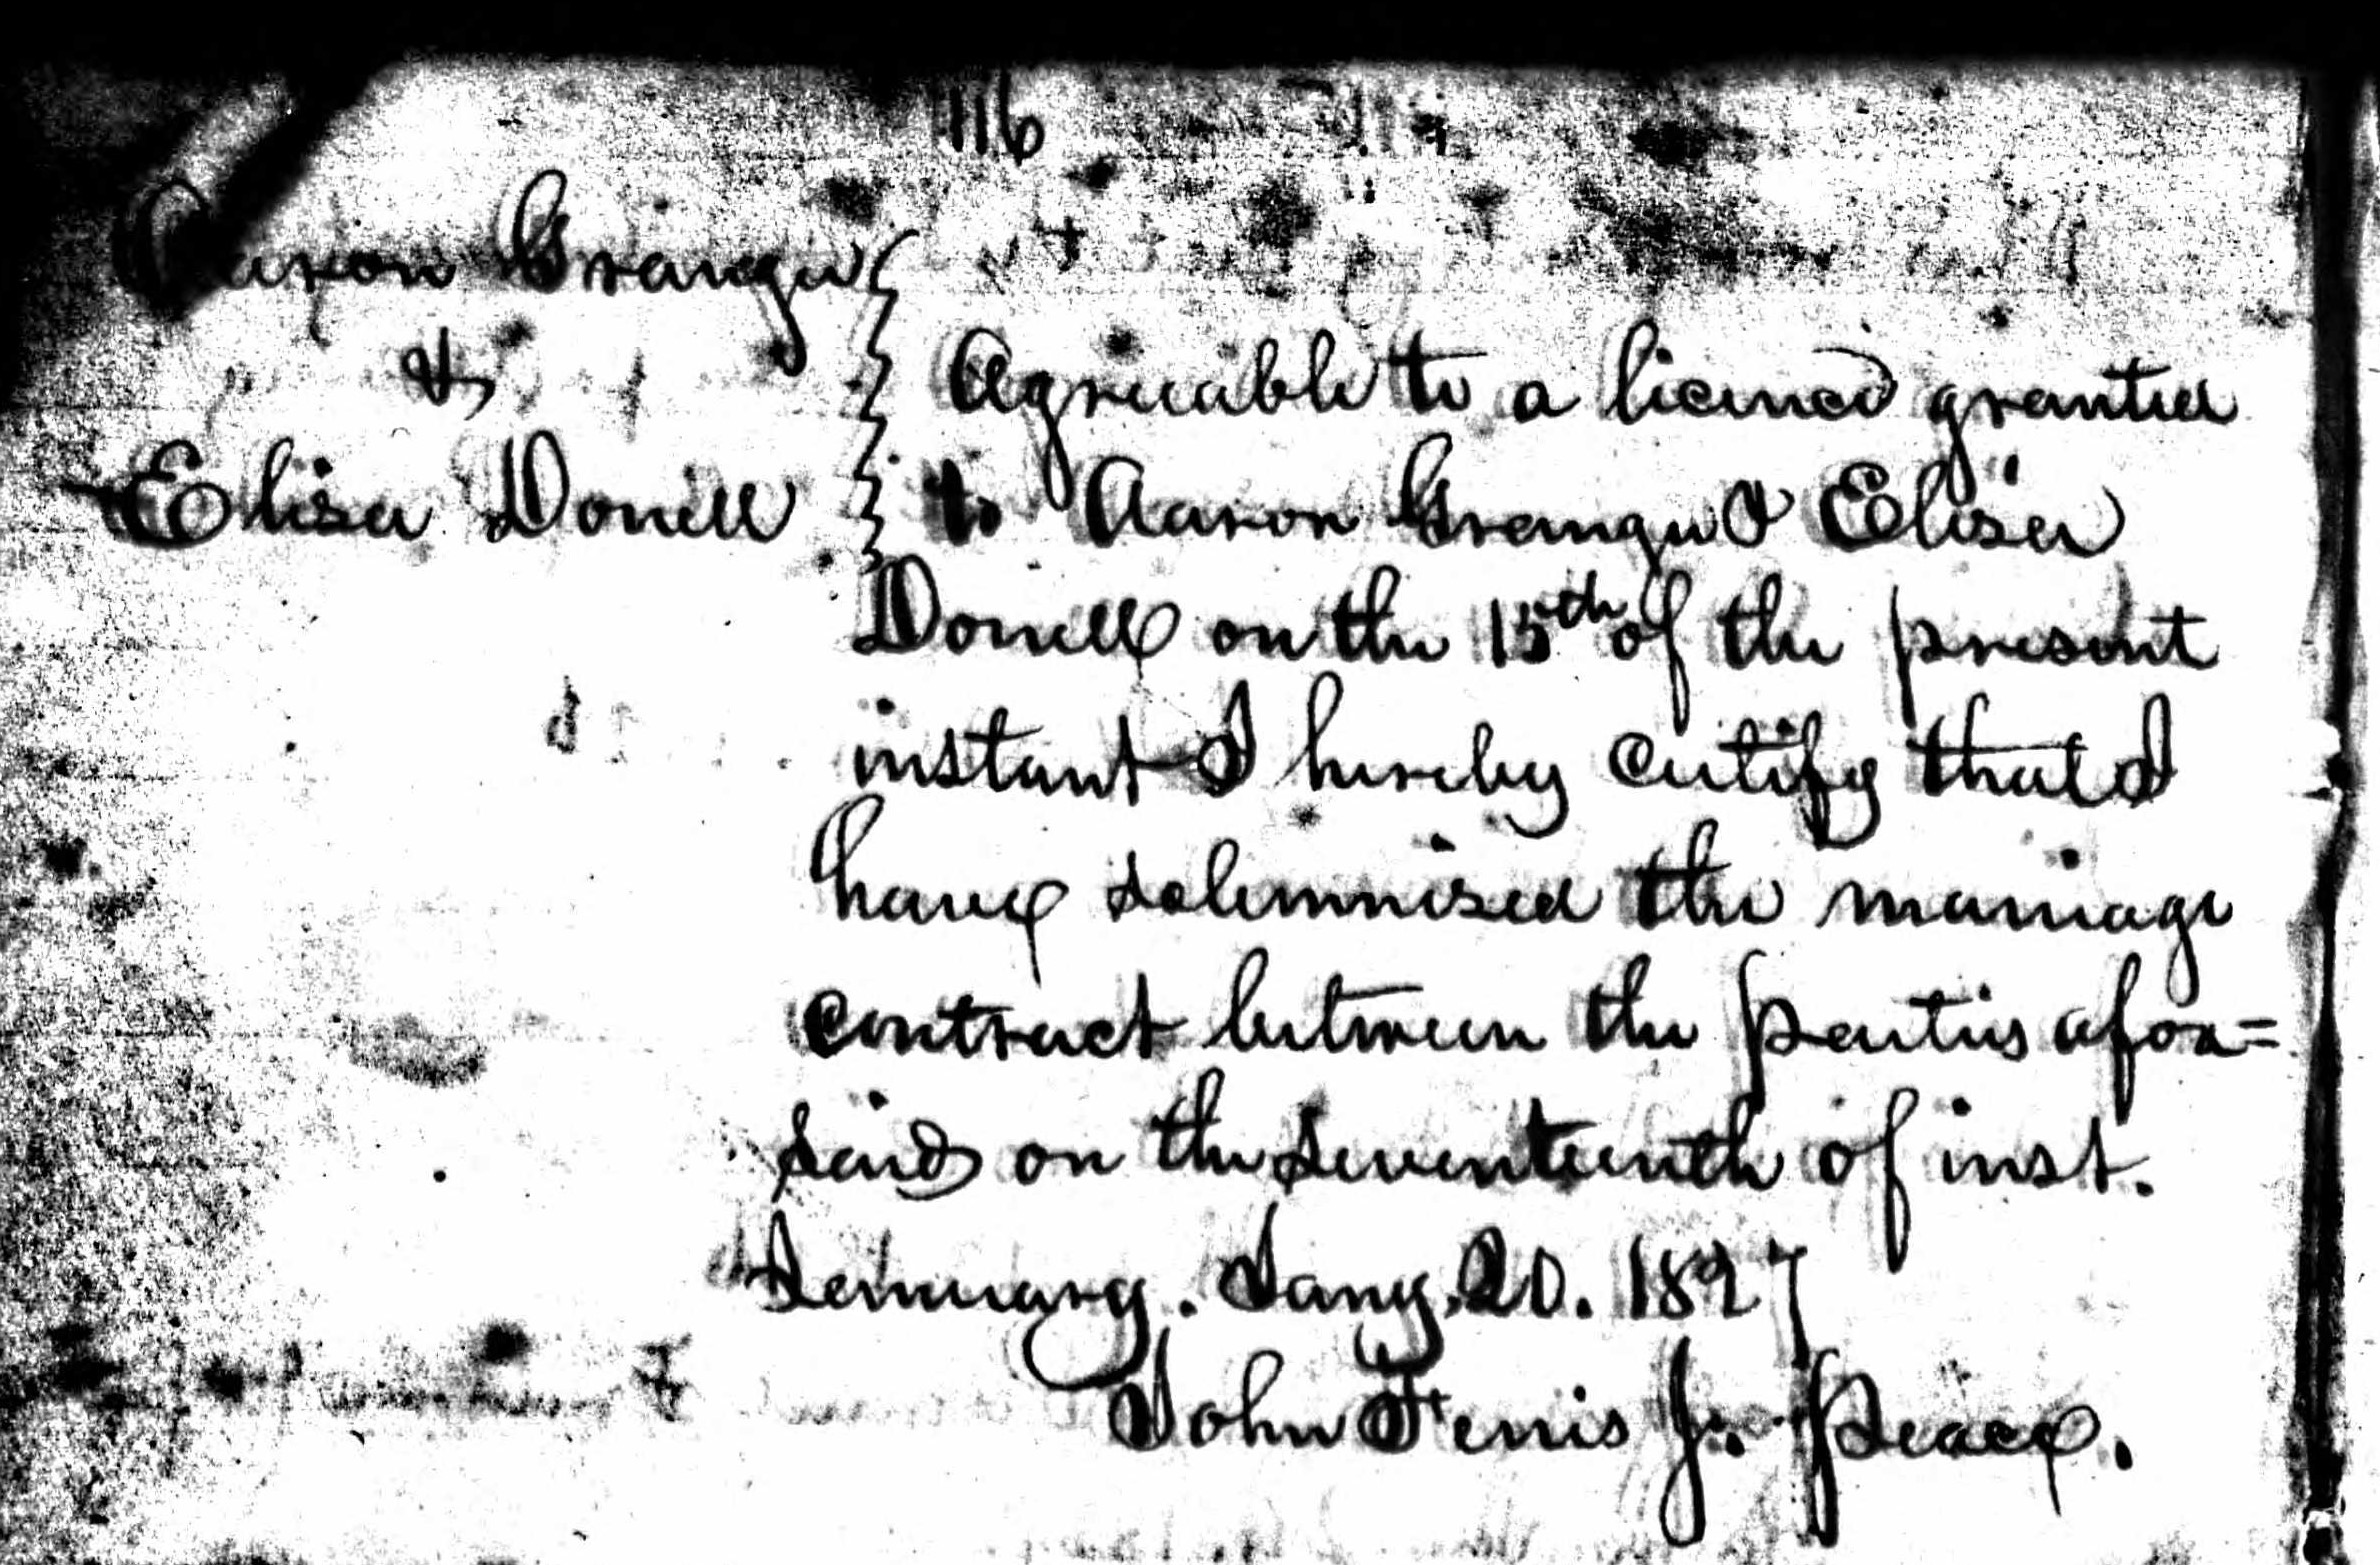 116
Aaron Granger
&
Elisa Donell
Agreeable to a licenced granted
to Aaron Granger & Elisa
Donell on the 15th of the present
instant I hereby certify that I
have solemnised the marriage
contract between the parties afore=
said on the seventeenth of inst.
January. Jany. 20. 1827
John Ferris J. Peace.